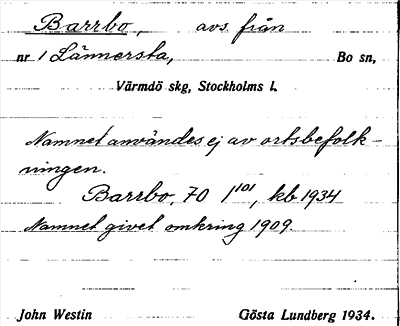 Barrbo, avs. från
nr 1 Lännersta, Bo sn,
Värmdö skg, Stockholms l.
Namnet användes ej av ortsbefolk-
ningen.
Barrbo, 70 1/101, kb 1934
Namnet givet omkring 1909.
John Westin Gösta Lundberg 1934.